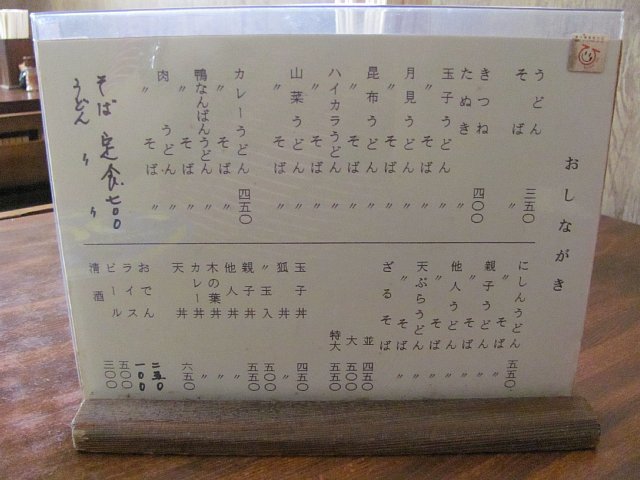 おしながき
うどん 三五〇
そば 〃
きつね 四〇〇
たぬき 〃
玉子うどん 〃
〃 そば 〃
月見うどん 〃
〃 そば 〃
昆布うどん 〃
〃 そば 〃
ハイカラうどん 〃
〃 そば 〃
山菜うどん 〃
〃 そば 〃
カレーうどん 四五〇
〃 そば 〃
鴨なんばんうどん 〃
〃 そば 〃
肉 うどん 〃
〃 そば 〃
そば 定食 七〇〇
うどん 〃 〃
にしんうどん 五五〇
〃 そば 〃
親子うどん 〃
〃 そば 〃
他人うどん 〃
〃 そば 〃
天ぷらうどん 〃
〃 そば 〃
ざるそば
並 四五〇
大 五〇〇
特大 五五〇
玉子丼 四五〇
狐丼 〃
〃玉入 五〇〇
親子丼 五五〇
他人丼 〃
木の葉丼 〃
カレー丼 〃
天丼 六五〇
おでん 二五〇
ライス 一〇〇
ビール 五〇〇
清酒 三〇〇